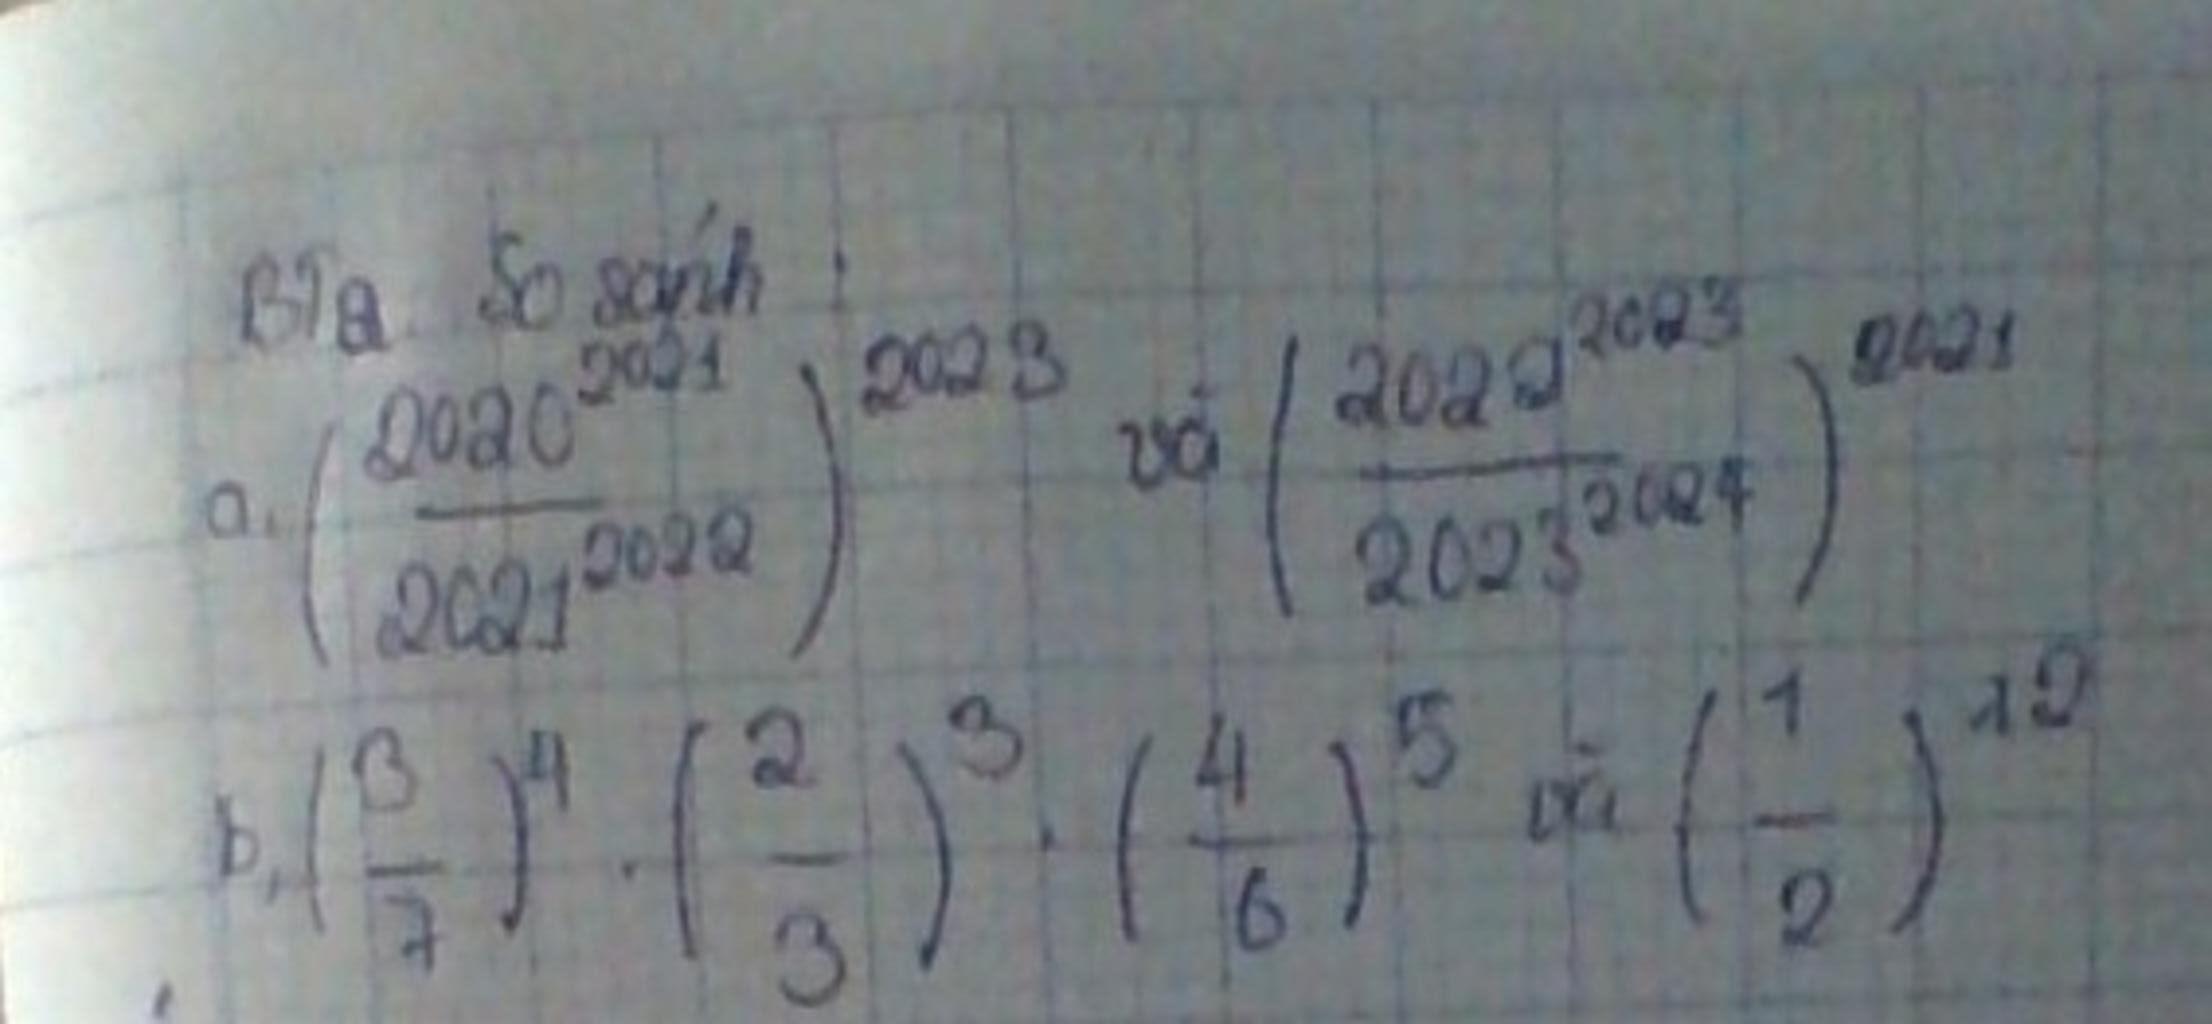 BT2 So sánh :
a. (2020^2021 / 2021^2022)^2023 và (2022^2023 / 2023^2024)^2021
b, (3/7)^4 . (2/3)^3 . (4/6)^5 và (1/2)^12